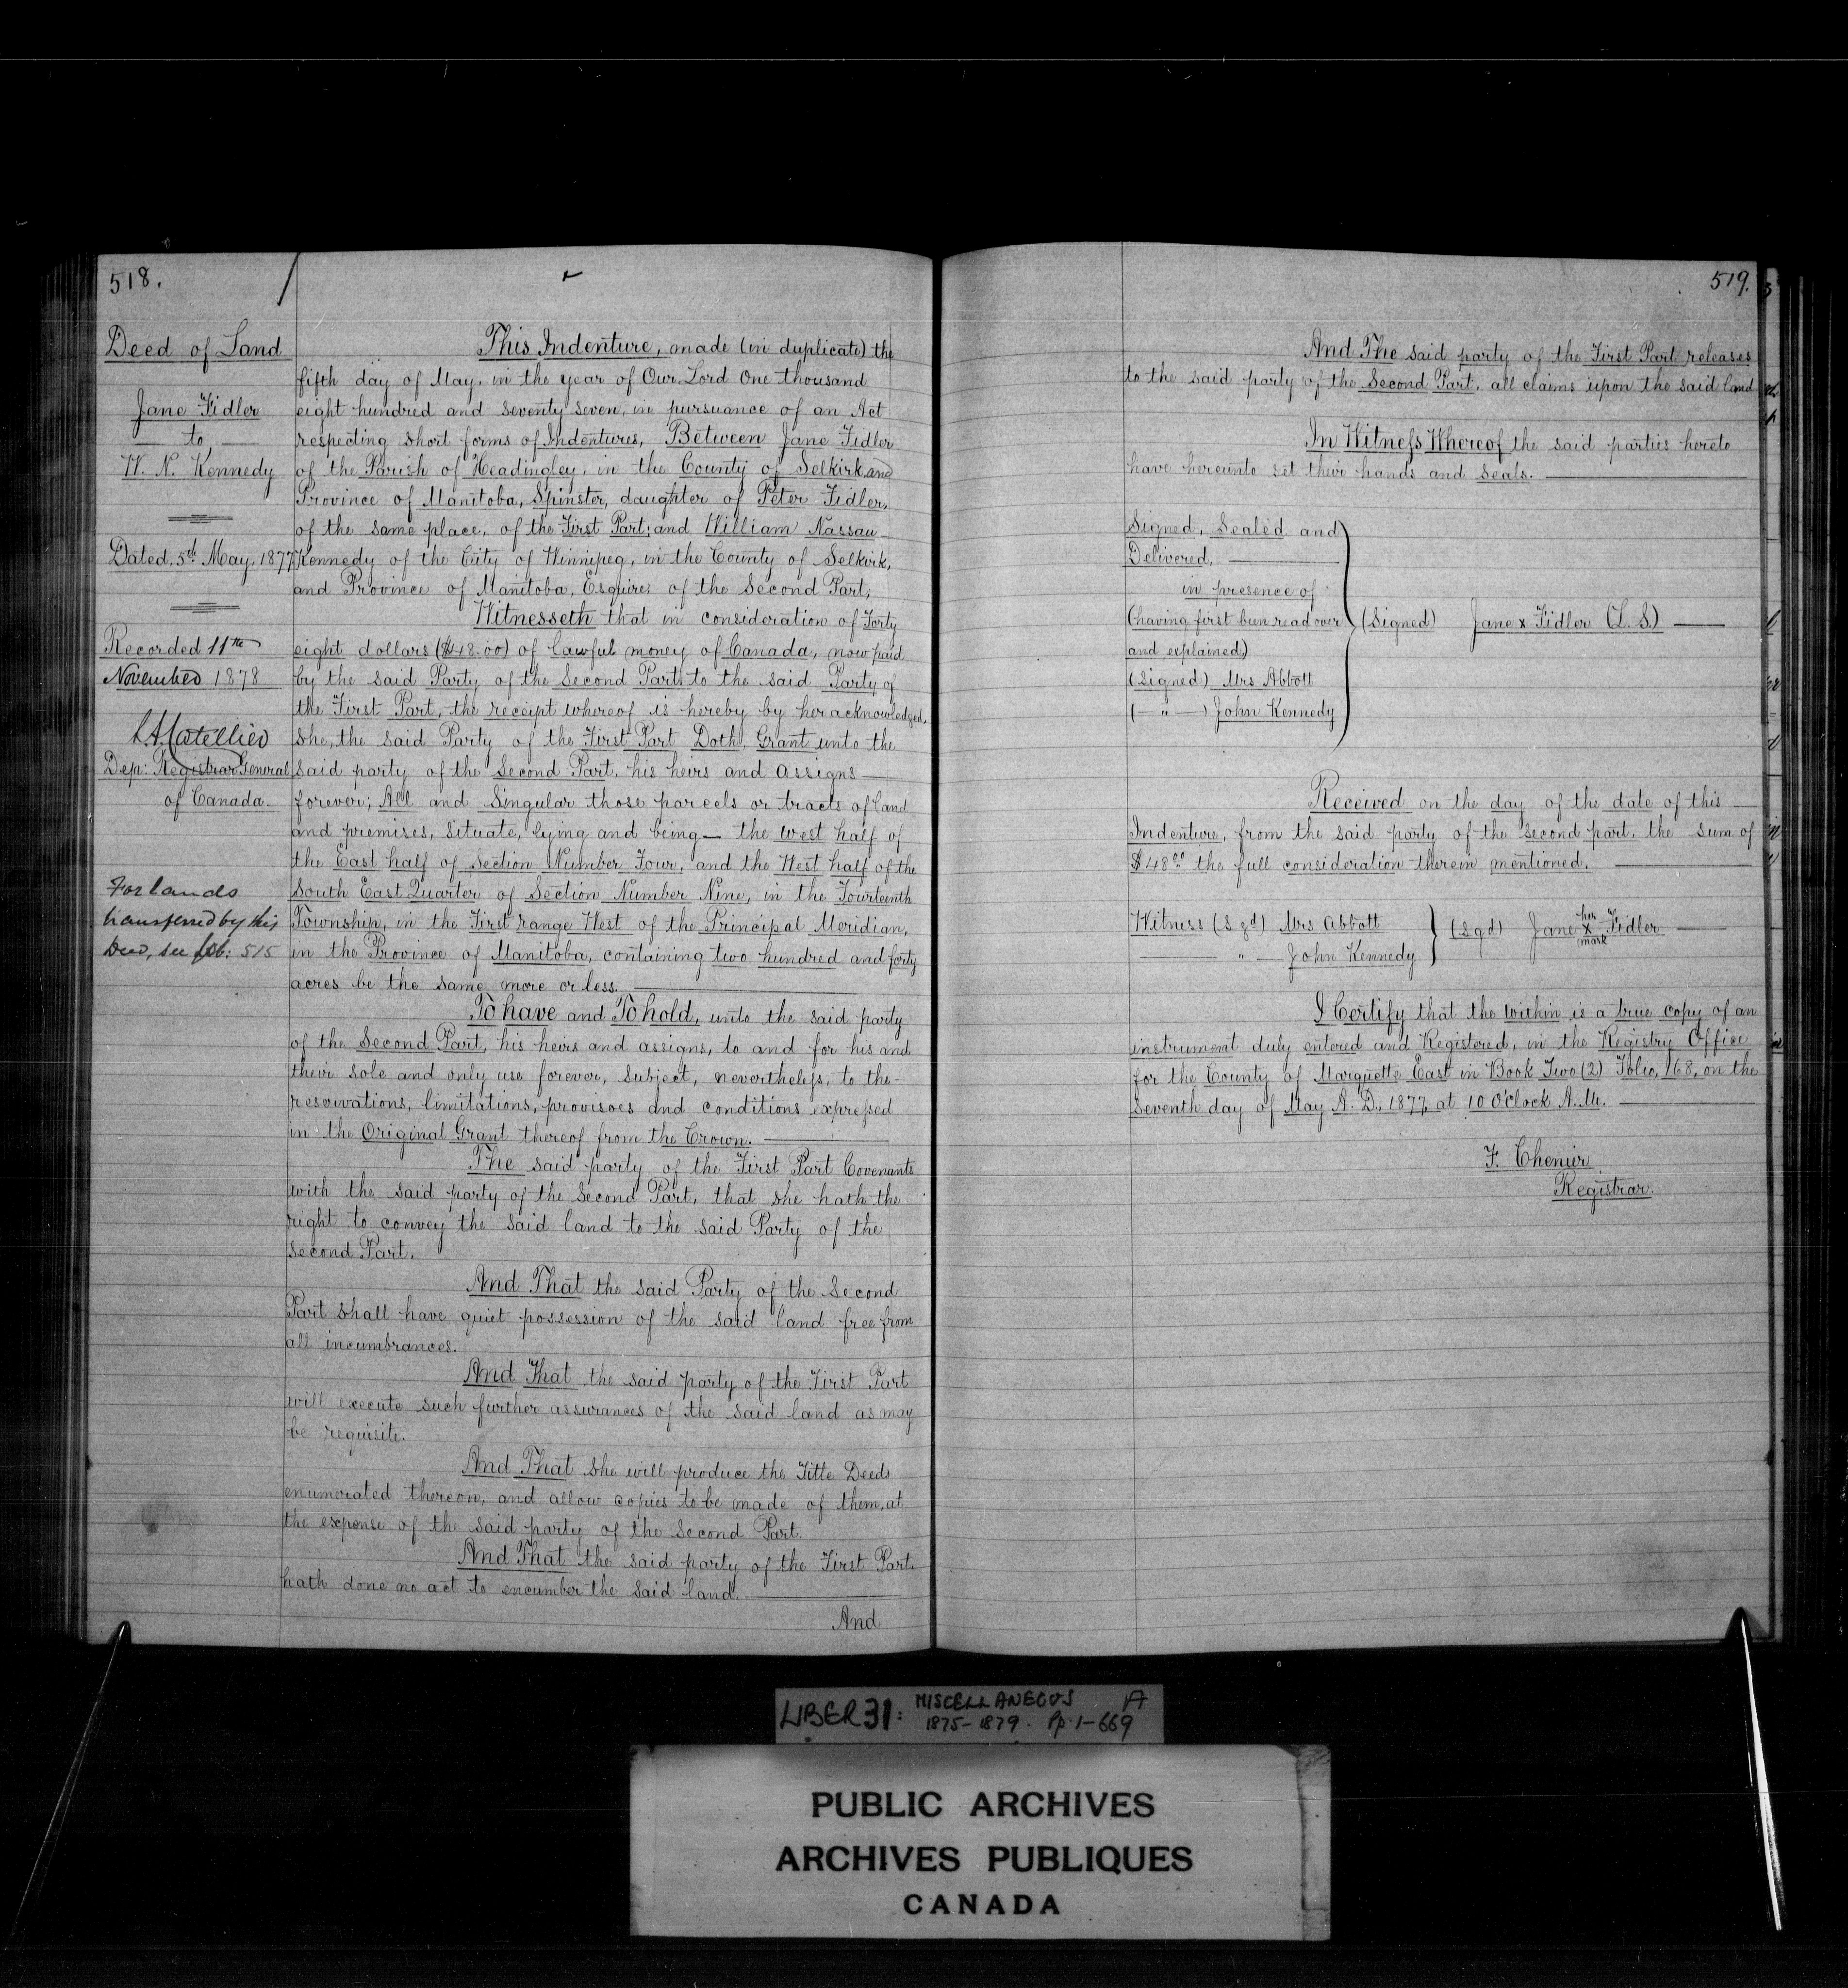 518.
Deed of Land
Jane Fidler
— to —
W. N. Kennedy
Dated, 5th May, 1877
Recorded 11th
November 1878
Dep: Registrar General
of Canada.
For lands
transferred by this
Deed, see fol: 515
This Indenture, made (in duplicate) the
fifth day of May, in the year of Our Lord One thousand
eight hundred and seventy seven, in pursuance of an Act
respecting short forms of Indentures, Between Jane Fidler
of the Parish of Headingley, in the County of Selkirk and
Province of Manitoba, Spinster, daughter of Peter Fidler,
of the same place, of the First Part; and William Nassau
Kennedy of the City of Winnipeg, in the County of Selkirk,
and Province of Manitoba, Esquires of the Second Part;
Witnesseth that in consideration of Forty
eight dollars ($48.00) of lawful money of Canada, now paid
by the said Party of the Second Part to the said Party of
the First Part, the receipt whereof is hereby by her acknowledged,
She, the said Party of the First Part Doth, Grant unto the
said party of the Second Part, his heirs and assigns —
forever; All and Singular those parcels or tracts of land
and premises, situate, lying and being — the west half of
the East half of Section Number Four, and the West half of the
South East Quarter of Section Number Nine, in the Fourteenth
Township, in the First range West of the Principal Meridian,
in the Province of Manitoba, containing two hundred and forty
acres be the same more or less. —
To have and To hold, unto the said party
of the Second Part, his heirs and assigns, to and for his and
their sole and only use forever, Subject, nevertheless, to the -
reservations, limitations, provisoes and conditions expressed
in the Original Grant thereof from the Crown. —
The said party of the First Part Covenants
with the said party of the Second Part, that she hath the
right to convey the said land to the said Party of the
Second Part.
And That the said Party of the Second
Part shall have quiet possession of the said land free from
all incumbrances.
And That the said party of the First Part
will execute such further assurances of the said land as may
be requisite.
And That she will produce the Title Deeds
enumerated thereon, and allow copies to be made of them, at
the expense of the said party of the Second Part.
And That the said party of the First Part
hath done no act to encumber the said land. —
And
519.
And The said party of the First Part releases
to the said party of the Second Part, all claims upon the said land
In Witness Whereof the said parties hereto
have hereunto set their hands and seals. —
Signed, Sealed and
Delivered, —
in presence of
(having first been read over
and explained)
(Signed) Mrs Abbott
(— " —) John Kennedy
(Signed) Jane x Fidler (L.S.) —
Received on the day of the date of this —
Indenture, from the said party of the second part, the sum of
$48.00 the full consideration therein mentioned. —
Witness (Sgd) Mrs Abbott
— " — John Kennedy
(Sgd) Jane her x mark Fidler —
I Certify that the within is a true copy of an
instrument duly entered and Registered, in the Registry Office
for the County of Marquette East in Book Two (2) Folio, 168, on the
Seventh day of May A. D., 1877, at 10 O'Clock A.M. —
F. Chenier
Registrar.
LIBER 31: MISCELLANEOUS A
1875-1879. Pp. 1-669
PUBLIC ARCHIVES
ARCHIVES PUBLIQUES
CANADA